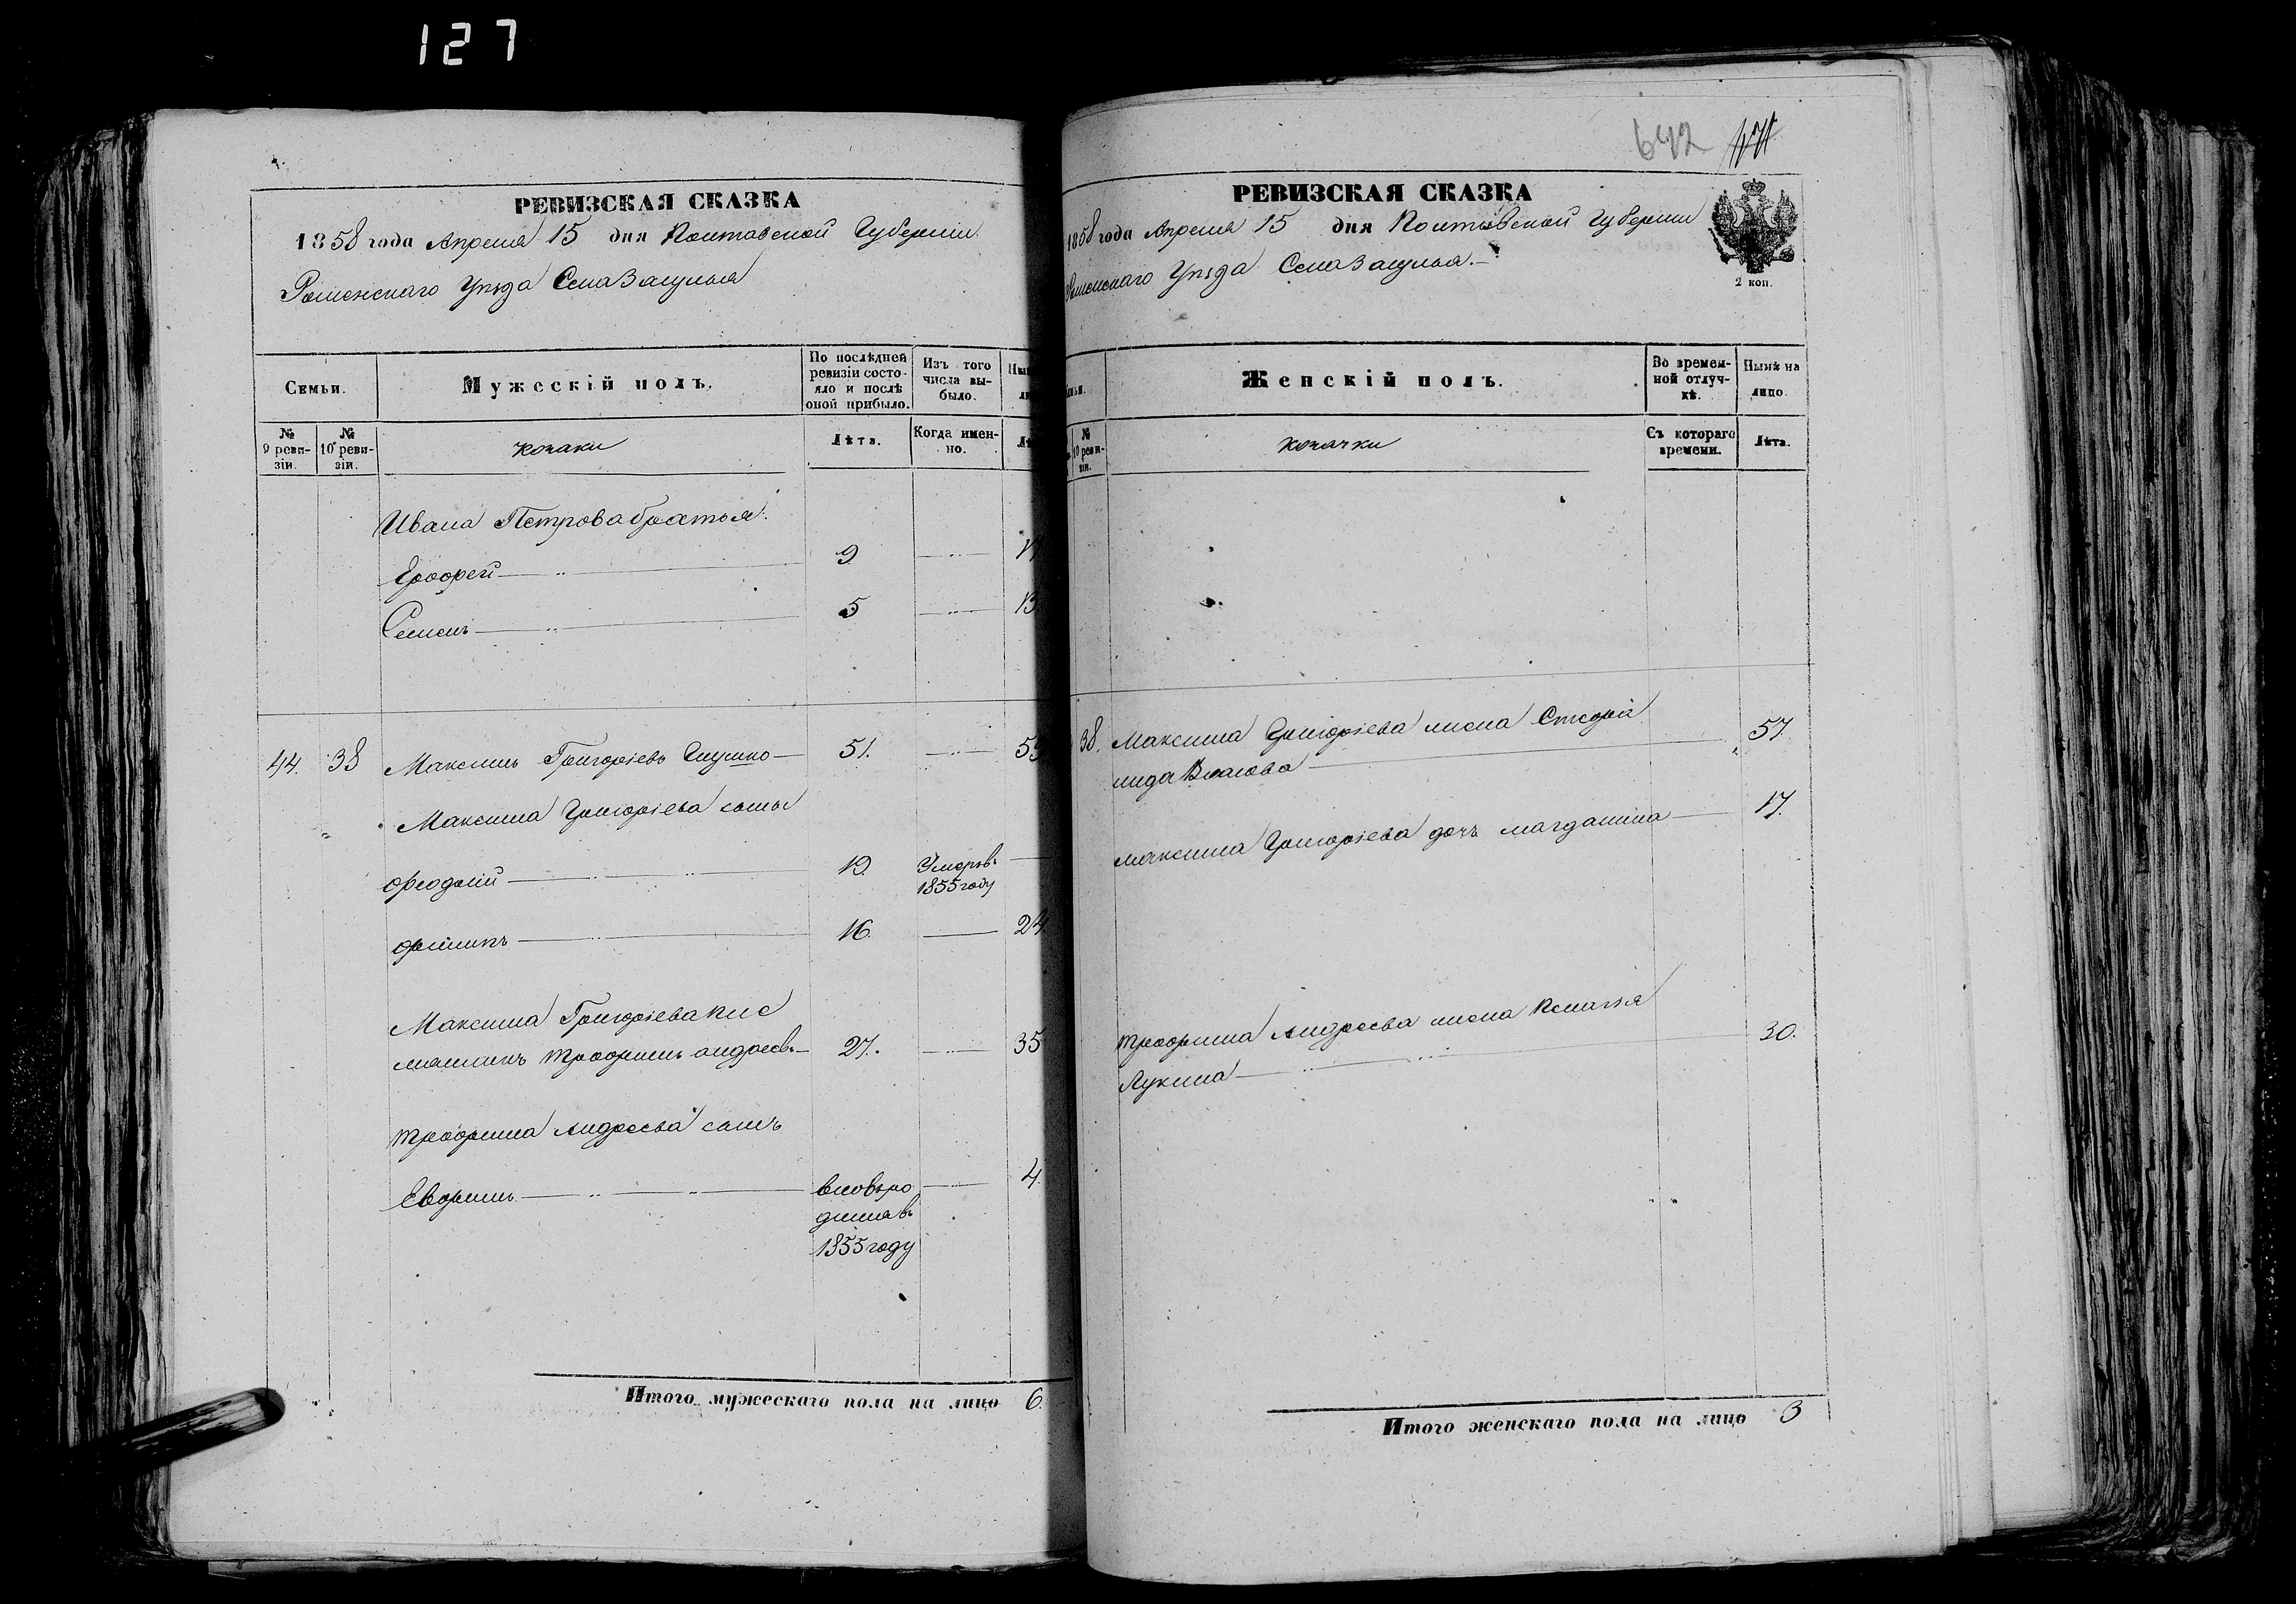 127
РЕВИЗСКАЯ СКАЗКА
1858 года Апреля 15 дня Полтавской Губернии
Роменскаго Уѣзда Села Засулья
Семьи.
Мужескій полъ.
По послѣдней ревизіи состояло и послѣ оной прибыло.
Изъ того числа выбыло.
№ 9 ревизіи.
№ 10 ревизіи.
козаки
Лѣта.
Когда именно.
Ивана Петрова братья:
Ерофей 9
Семенъ 5 13
44. 38 Максимъ Григоріевъ Глушко 51. 59
Максима Григоріева сыны
Феодосій 19. Умеръ в 1855 году
Филипъ 16. 24
Максима Григоріева пле
мянникъ Трофимъ Андреевъ 27. 35
Трофима Андреева сынъ
Евфимъ вновь ро 4.
дился в
1855 году
Итого мужескаго пола на лицо 6.
642
РЕВИЗСКАЯ СКАЗКА
1858 года Апреля 15 дня Полтавской Губернии
Роменскаго Уѣзда Села Засулья.
2 коп.
Женскій полъ.
Во временной отлучкѣ.
Нынѣ на лицо.
№ 10 ревизіи.
козачки
Съ котораго времени.
Лѣта.
38. Максима Григоріева жена Степа
нида Власова 57.
Максима Григоріева дочь Магдалина 17.
Трофима Андреева жена Пелагея
Лукина 30.
Итого женскаго пола на лицо 3